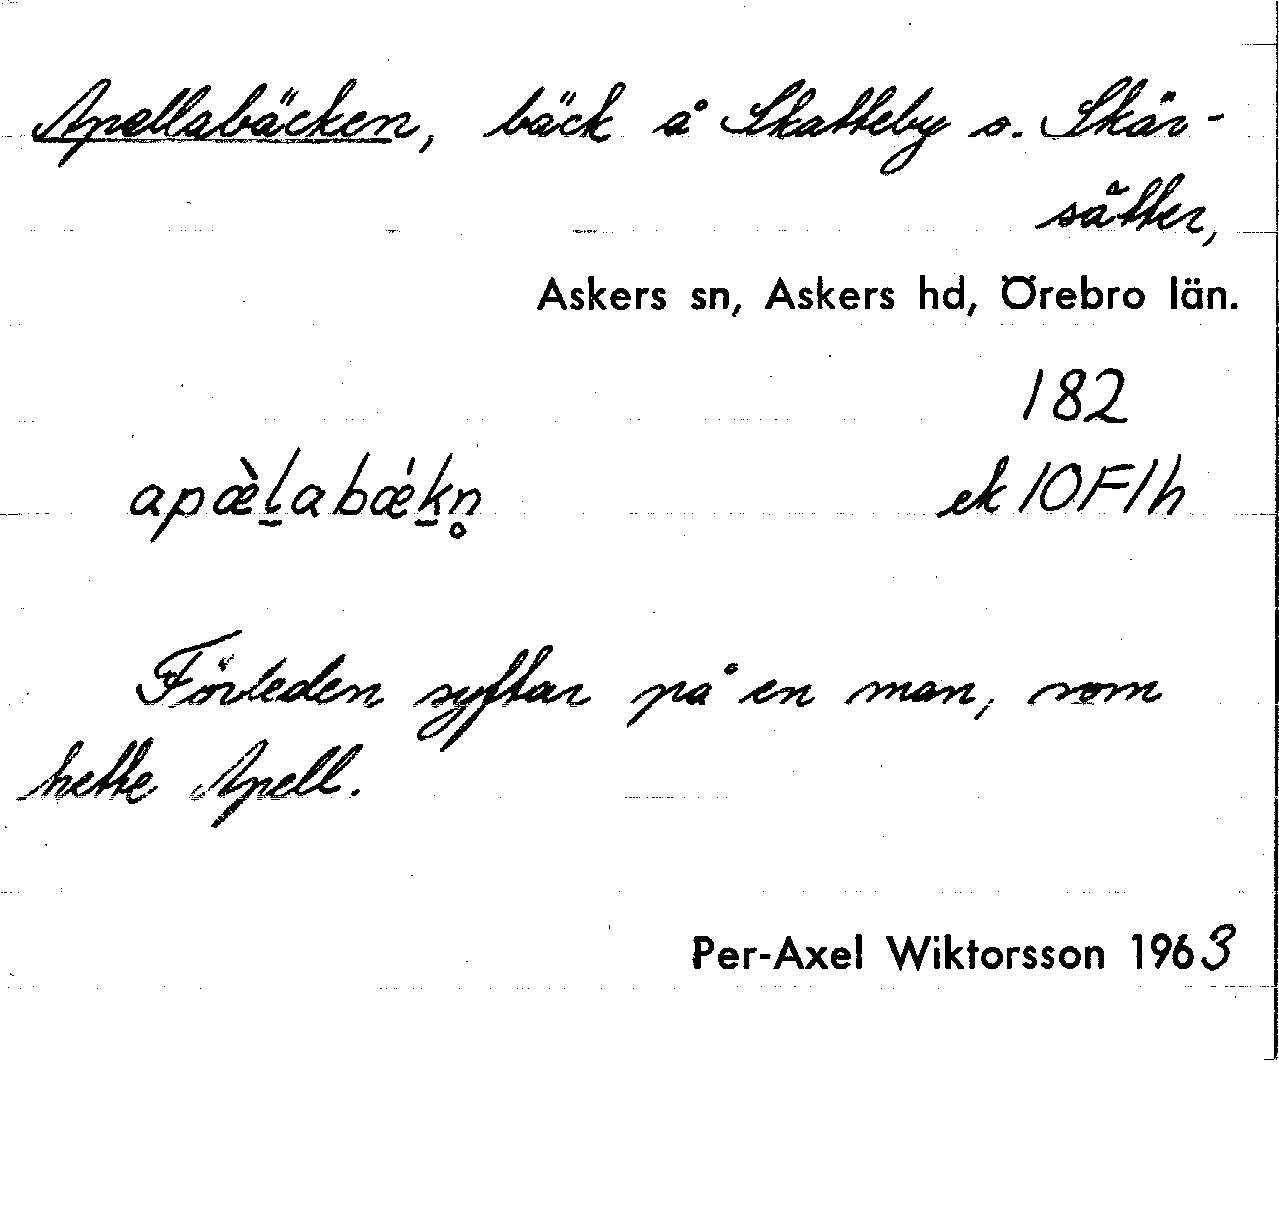 Apellabäcken, bäck å Skatteby o. Skär-
sätter,
Askers sn, Askers hd, Örebro län.
182
apæ̀l̠abǽk̠n̥ ek 10F1h
Förleden syftar på en man, som
hette Apell.
Per-Axel Wiktorsson 1963